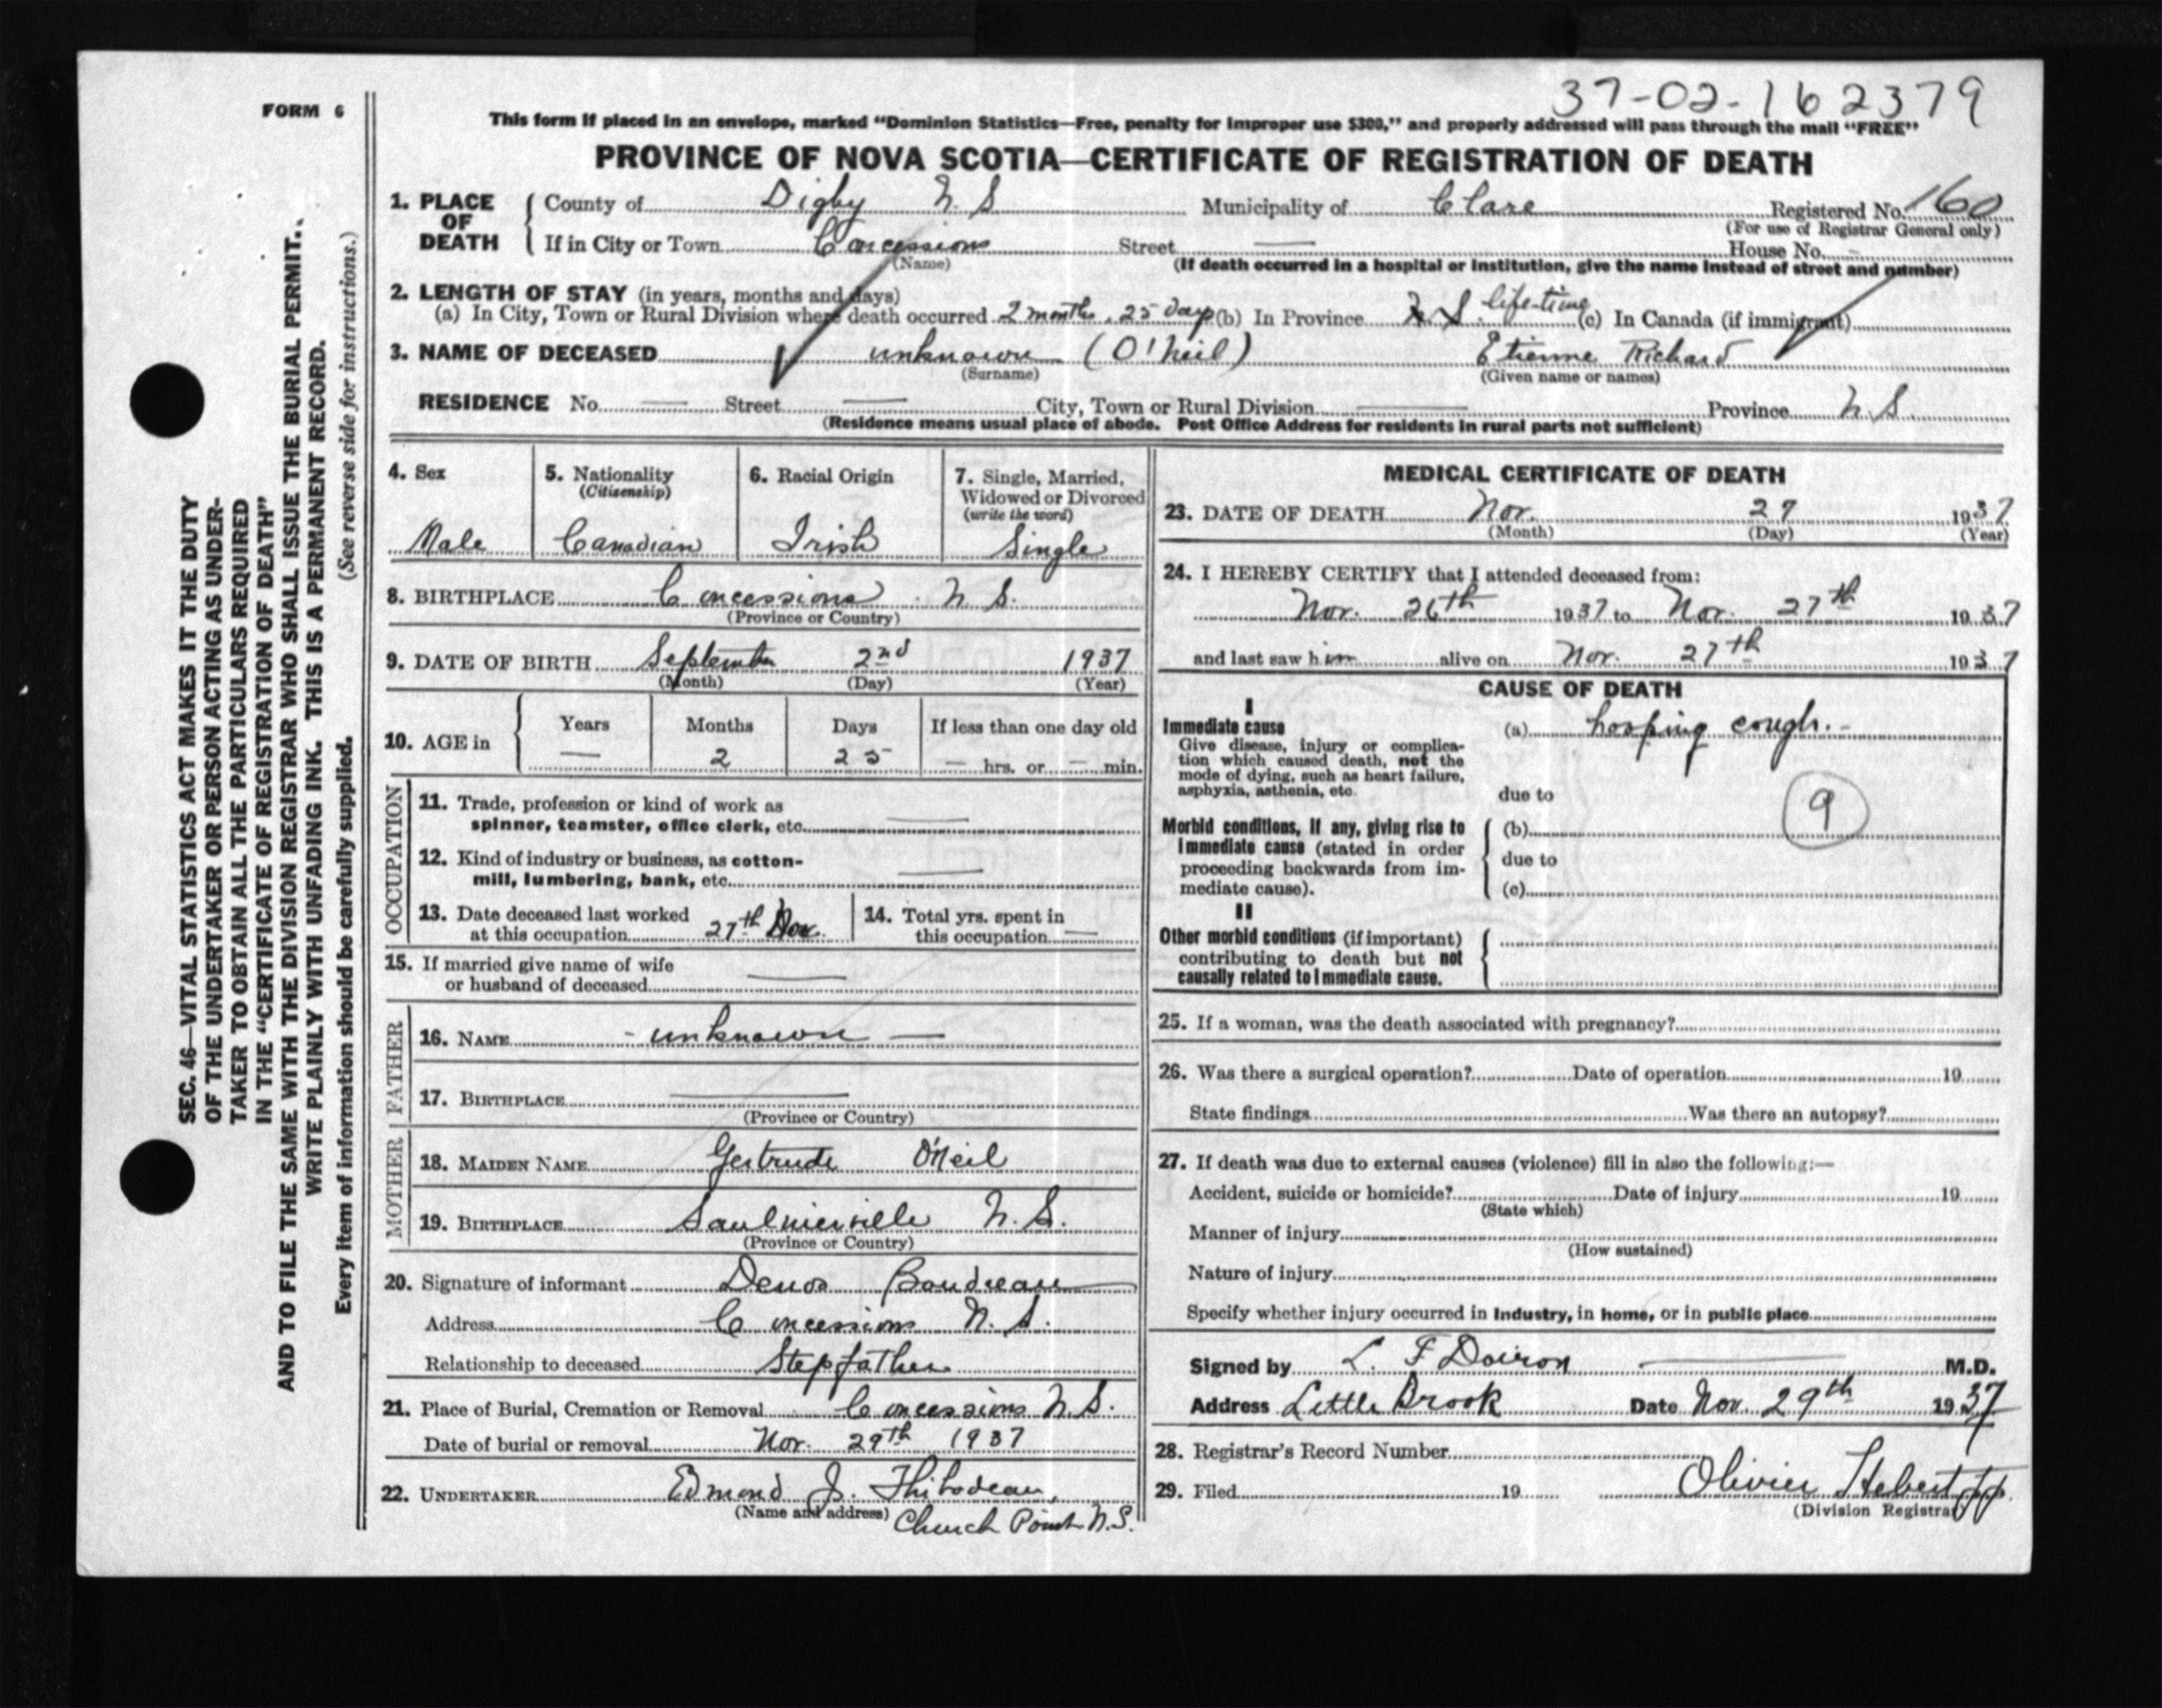 37-02-162379
FORM 6
This form if placed in an envelope, marked "Dominion Statistics—Free, penalty for improper use $300," and properly addressed will pass through the mail "FREE"
PROVINCE OF NOVA SCOTIA—CERTIFICATE OF REGISTRATION OF DEATH
1. PLACE OF DEATH County of Digby N. S Municipality of Clare Registered No. 160
(For use of Registrar General only)
If in City or Town Concessions Street — House No. -
(Name) (If death occurred in a hospital or institution, give the name instead of street and number)
2. LENGTH OF STAY (in years, months and days)
(a) In City, Town or Rural Division where death occurred 2 months, 25 days (b) In Province N. S. life-time (c) In Canada (if immigrant)
3. NAME OF DECEASED unknown (O'Neil) Etienne Richard
(Surname) (Given name or names)
RESIDENCE No. — Street — City, Town or Rural Division — Province N. S.
(Residence means usual place of abode. Post Office Address for residents in rural parts not sufficient)
4. Sex
Male
5. Nationality
(Citizenship)
Canadian
6. Racial Origin
Irish
7. Single, Married,
Widowed or Divorced
(write the word)
Single
8. BIRTHPLACE Concessions N. S.
(Province or Country)
9. DATE OF BIRTH September 2nd 1937
(Month) (Day) (Year)
10. AGE in Years Months Days If less than one day old
— 2 25 — hrs. or — min.
OCCUPATION
11. Trade, profession or kind of work as
spinner, teamster, office clerk, etc. —
12. Kind of industry or business, as cotton-
mill, lumbering, bank, etc. —
13. Date deceased last worked
at this occupation 27th Nov.
14. Total yrs. spent in
this occupation —
15. If married give name of wife
or husband of deceased —
FATHER
16. NAME - unknown —
17. BIRTHPLACE —
(Province or Country)
MOTHER
18. MAIDEN NAME Gertrude O'Neil
19. BIRTHPLACE Saulnierville N. S.
(Province or Country)
20. Signature of informant Boudreau
Address Concessions N. S.
Relationship to deceased Step father
21. Place of Burial, Cremation or Removal Concessions N. S.
Date of burial or removal Nov. 29th 1937
22. UNDERTAKER Edmond J. Thibodeau,
(Name and address) Church Point N.S.
MEDICAL CERTIFICATE OF DEATH
23. DATE OF DEATH Nov. 27 1937
(Month) (Day) (Year)
24. I HEREBY CERTIFY that I attended deceased from:
Nov. 26th 1937 to Nov. 27th 1937
and last saw him alive on Nov. 27th 1937
CAUSE OF DEATH
I
Immediate cause
Give disease, injury or complica-
tion which caused death, not the
mode of dying, such as heart failure,
asphyxia, asthenia, etc.
(a) hooping cough.-
due to
9
Morbid conditions, if any, giving rise to
immediate cause (stated in order
proceeding backwards from im-
mediate cause).
(b)
due to
(c)
II
Other morbid conditions (if important)
contributing to death but not
causally related to immediate cause.
25. If a woman, was the death associated with pregnancy?
26. Was there a surgical operation? Date of operation 19
State findings Was there an autopsy?
27. If death was due to external causes (violence) fill in also the following:—
Accident, suicide or homicide? Date of injury 19
(State which)
Manner of injury
(How sustained)
Nature of injury
Specify whether injury occurred in industry, in home, or in public place
Signed by L. F Doiron — M.D.
Address Little Brook Date Nov. 29th 1937
28. Registrar's Record Number
29. Filed 19 Olivier Hebert
(Division Registrar)
SEC. 46—VITAL STATISTICS ACT MAKES IT THE DUTY
OF THE UNDERTAKER OR PERSON ACTING AS UNDER-
TAKER TO OBTAIN ALL THE PARTICULARS REQUIRED
IN THE "CERTIFICATE OF REGISTRATION OF DEATH"
AND TO FILE THE SAME WITH THE DIVISION REGISTRAR WHO SHALL ISSUE THE BURIAL PERMIT.
WRITE PLAINLY WITH UNFADING INK. THIS IS A PERMANENT RECORD.
Every item of information should be carefully supplied. (See reverse side for instructions.)